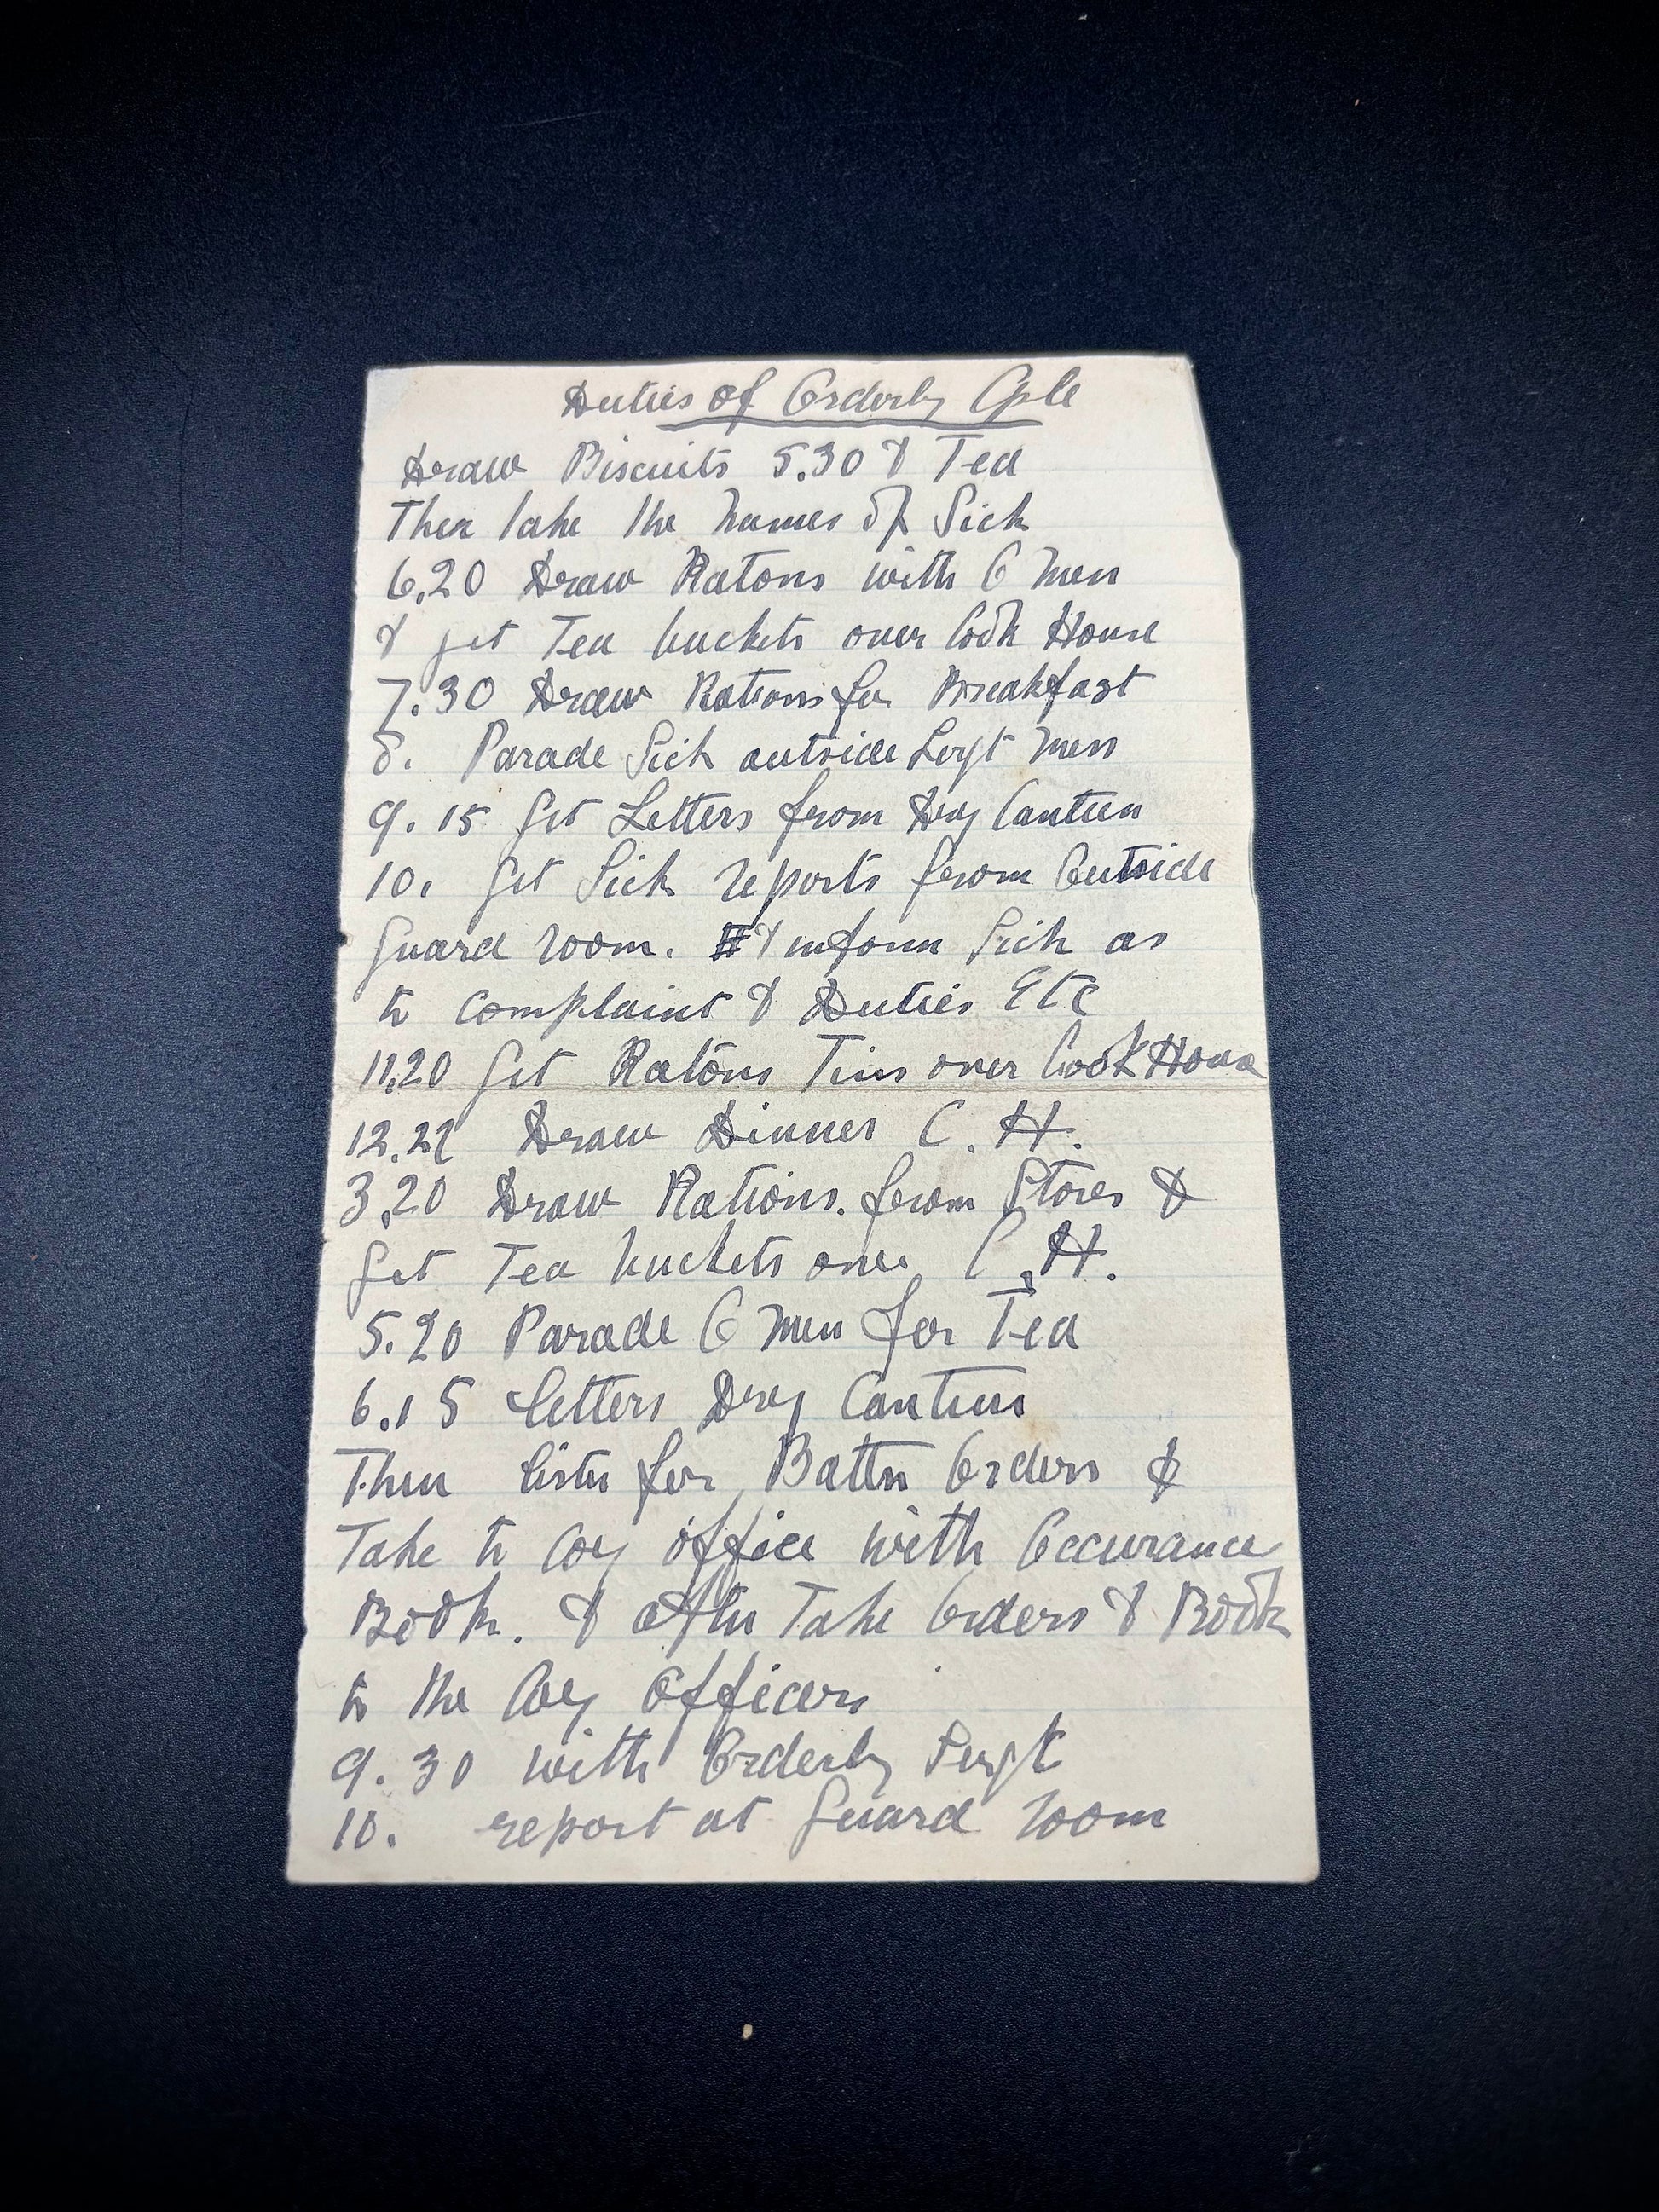 Duties of Orderly Cple
Draw Biscuits 5.30 & Tea
Then take the names of Sick
6.20 Draw Ratons with 6 men
& get Tea buckets over Cook House
7.30 Draw Rations for Breakfast
8. Parade Sick outside Sergt mess
9.15 Get Letters from Dry Canteen
10. Get Sick reports from Outside
Guard room. & inform Sick as
to complaint & Duties Etc
11.20 Get Rations Tins over Cook House
Draw Dinner C. H.
3.20 Draw Rations. from Stores &
Get Tea buckets over C.H.
5.20 Parade 6 men for Tea
6.15 Letters Dry Canteen
Then listen for Battn Orders &
Take to Coy office with Occurance
Book. & after Take Orders & Book
to the Coy Officers
9.30 with Orderly Sergt
10. report at Guard room